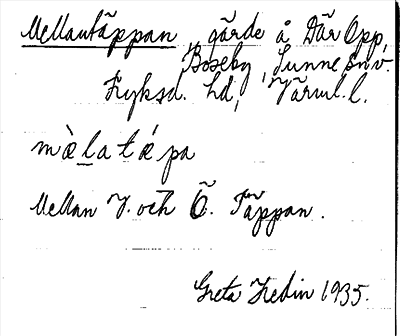 Mellantäppan, gärde å Där Opp,
Boseby, Sunne snv.
Fryksd. hd, Värml. l.
mæ̀latǽpa
Mellan V. och Ö. Täppan.
Greta Hedin 1935.